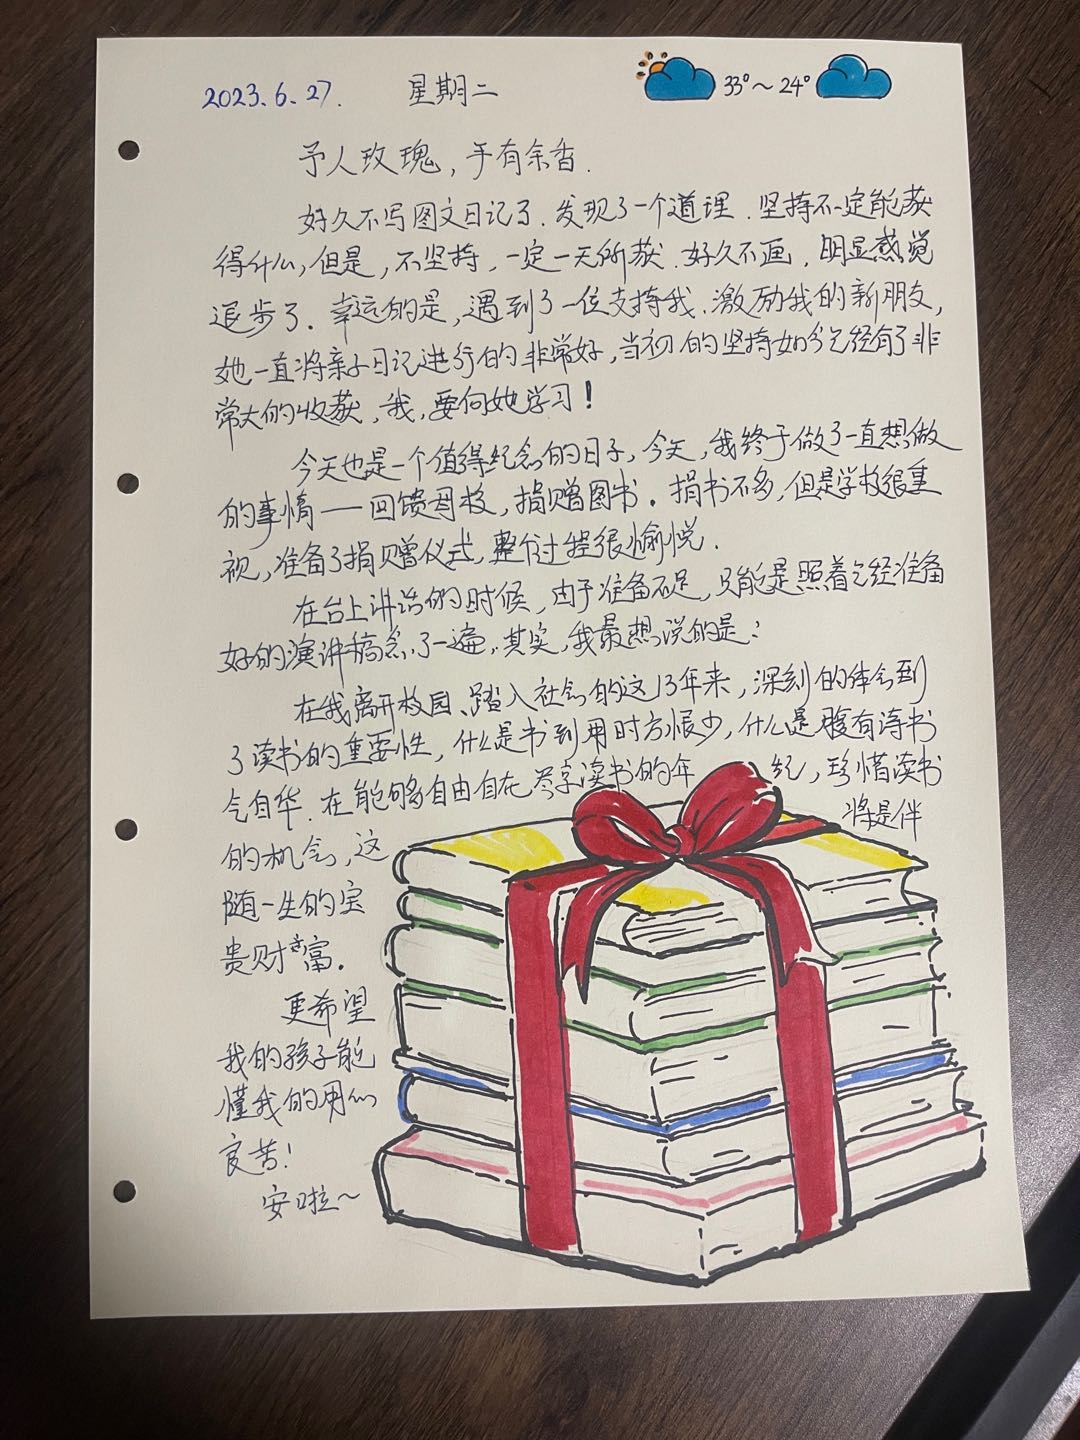 2023.6.27. 星期二 33°～24°
予人玫瑰，手有余香.
好久不写图文日记了.发现了一个道理.坚持不一定能获
得什么,但是,不坚持,一定一无所获.好久不画,明显感觉
退步了.幸运的是,遇到了一位支持我、激励我的新朋友,
她一直将亲子日记进行的非常好,当初的坚持如今已经有了非
常大的收获,我,要向她学习!
今天也是一个值得纪念的日子,今天,我终于做了一直想做
的事情——回馈母校,捐赠图书.捐书不多,但是学校很重
视,准备了捐赠仪式,整个过程很愉悦.
在台上讲话的时候,由于准备不足,只能是照着已经准备
好的演讲稿念了一遍.其实,我最想说的是:
在我离开校园、踏入社会的这13年来,深刻的体会到
了读书的重要性,什么是书到用时方恨少,什么是腹有诗书
气自华.在能够自由自在尽享读书的年纪,珍惜读书
的机会,这将是伴
随一生的宝
贵财富.
更希望
我的孩子能
懂我的用心
良苦!
安啦～